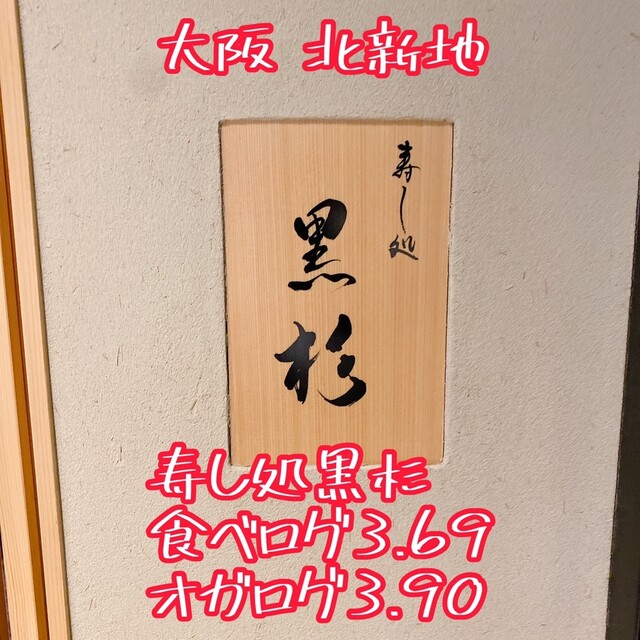 大阪 北新地
寿し処
黒杉
寿し処黒杉
食べログ3.69
オガログ3.90